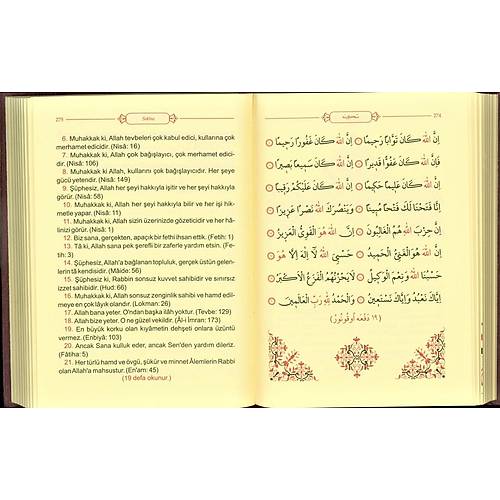 275
Sekîne
6. Muhakkak ki, Allah tevbeleri çok kabul edici, kullarına çok
merhamet edicidir. (Nisâ: 16)
7. Muhakkak ki, Allah çok bağışlayıcı, çok merhamet edici-
dir. (Nisâ: 106)
8. Muhakkak ki, Allah, kullarını çok bağışlayıcıdır. Her şeye
gücü yetendir. (Nisâ: 149)
9. Şüphesiz, Allah her şeyi hakkıyla işitir ve her şeyi hakkıyla
görür. (Nisâ: 58)
10. Muhakkak ki, Allah her şeyi hakkıyla bilir ve her işi hik-
metle yapar. (Nisâ: 11)
11. Muhakkak ki, Allah sizin üzerinizde gözeticidir ve her hâ-
linizi görür. (Nisâ: 1)
12. Biz sana, gerçekten, apaçık bir fethi ihsan ettik. (Fetih: 1)
13. Tâ ki, Allah sana pek şerefli bir zaferle yardım etsin. (Fe-
tih: 3)
14. Şüphesiz, Allah'a bağlanan topluluk, gerçek üstün gelen-
lerin tâ kendisidir. (Mâide: 56)
15. Şüphesiz ki, Rabbin sonsuz kuvvet sahibidir ve sınırsız
izzet sahibidir. (Hud: 66)
16. Muhakkak ki, Allah sonsuz zenginlik sahibi ve hamd edil-
meye en çok lâyık olandır. (Lokman: 26)
17. Allah bana yeter. O'ndan başka ilâh yoktur. (Tevbe: 129)
18. Allah bize yeter. O ne güzel vekildir. (Âl-i İmran: 173)
19. En büyük korku olan kıyâmetin dehşeti onlara üzüntü
vermez. (Enbiyâ: 103)
20. Ancak Sana kulluk eder, ancak Sen'den yardım dileriz.
(Fâtiha: 5)
21. Her türlü hamd ve övgü, şükür ve minnet Âlemlerin Rabbi
olan Allah'a mahsustur. (En'am: 45)
(19 defa okunur.)
274
سكينه
اِنَّ اللهَ كَانَ تَوَّابًا رَحِيمًا اِنَّ اللهَ كَانَ غَفُورًا رَحِيمًا
فَاِنَّ اللهَ كَانَ عَفُوًّا قَدِيرًا اِنَّ اللهَ كَانَ سَمِيعًا بَصِيرًا
اِنَّ اللهَ كَانَ عَلِيمًا حَكِيمًا اِنَّ اللهَ كَانَ عَلَيْكُمْ رَقِيبًا
اِنَّا فَتَحْنَا لَكَ فَتْحًا مُبِينًا وَيَنْصُرَكَ اللهُ نَصْرًا عَزِيزًا
اِنَّ حِزْبَ اللهِ هُمُ الْغَالِبُونَ اِنَّ اللهَ هُوَ الْقَوِىُّ الْعَزِيزُ
اِنَّ اللهَ هُوَ الْغَنِىُّ الْحَمِيدُ حَسْبِىَ اللهُ لَا اِلٰهَ اِلَّا هُوَ
حَسْبُنَا اللهُ وَنِعْمَ الْوَكِيلُ لَا يَحْزُنُهُمُ الْفَزَعُ الْاَكْبَرُ
اِيَّاكَ نَعْبُدُ وَاِيَّاكَ نَسْتَعِينُ وَالْحَمْدُ لِلهِ رَبِّ الْعَالَمِينَ
(١٩ دفعه اوقونور)